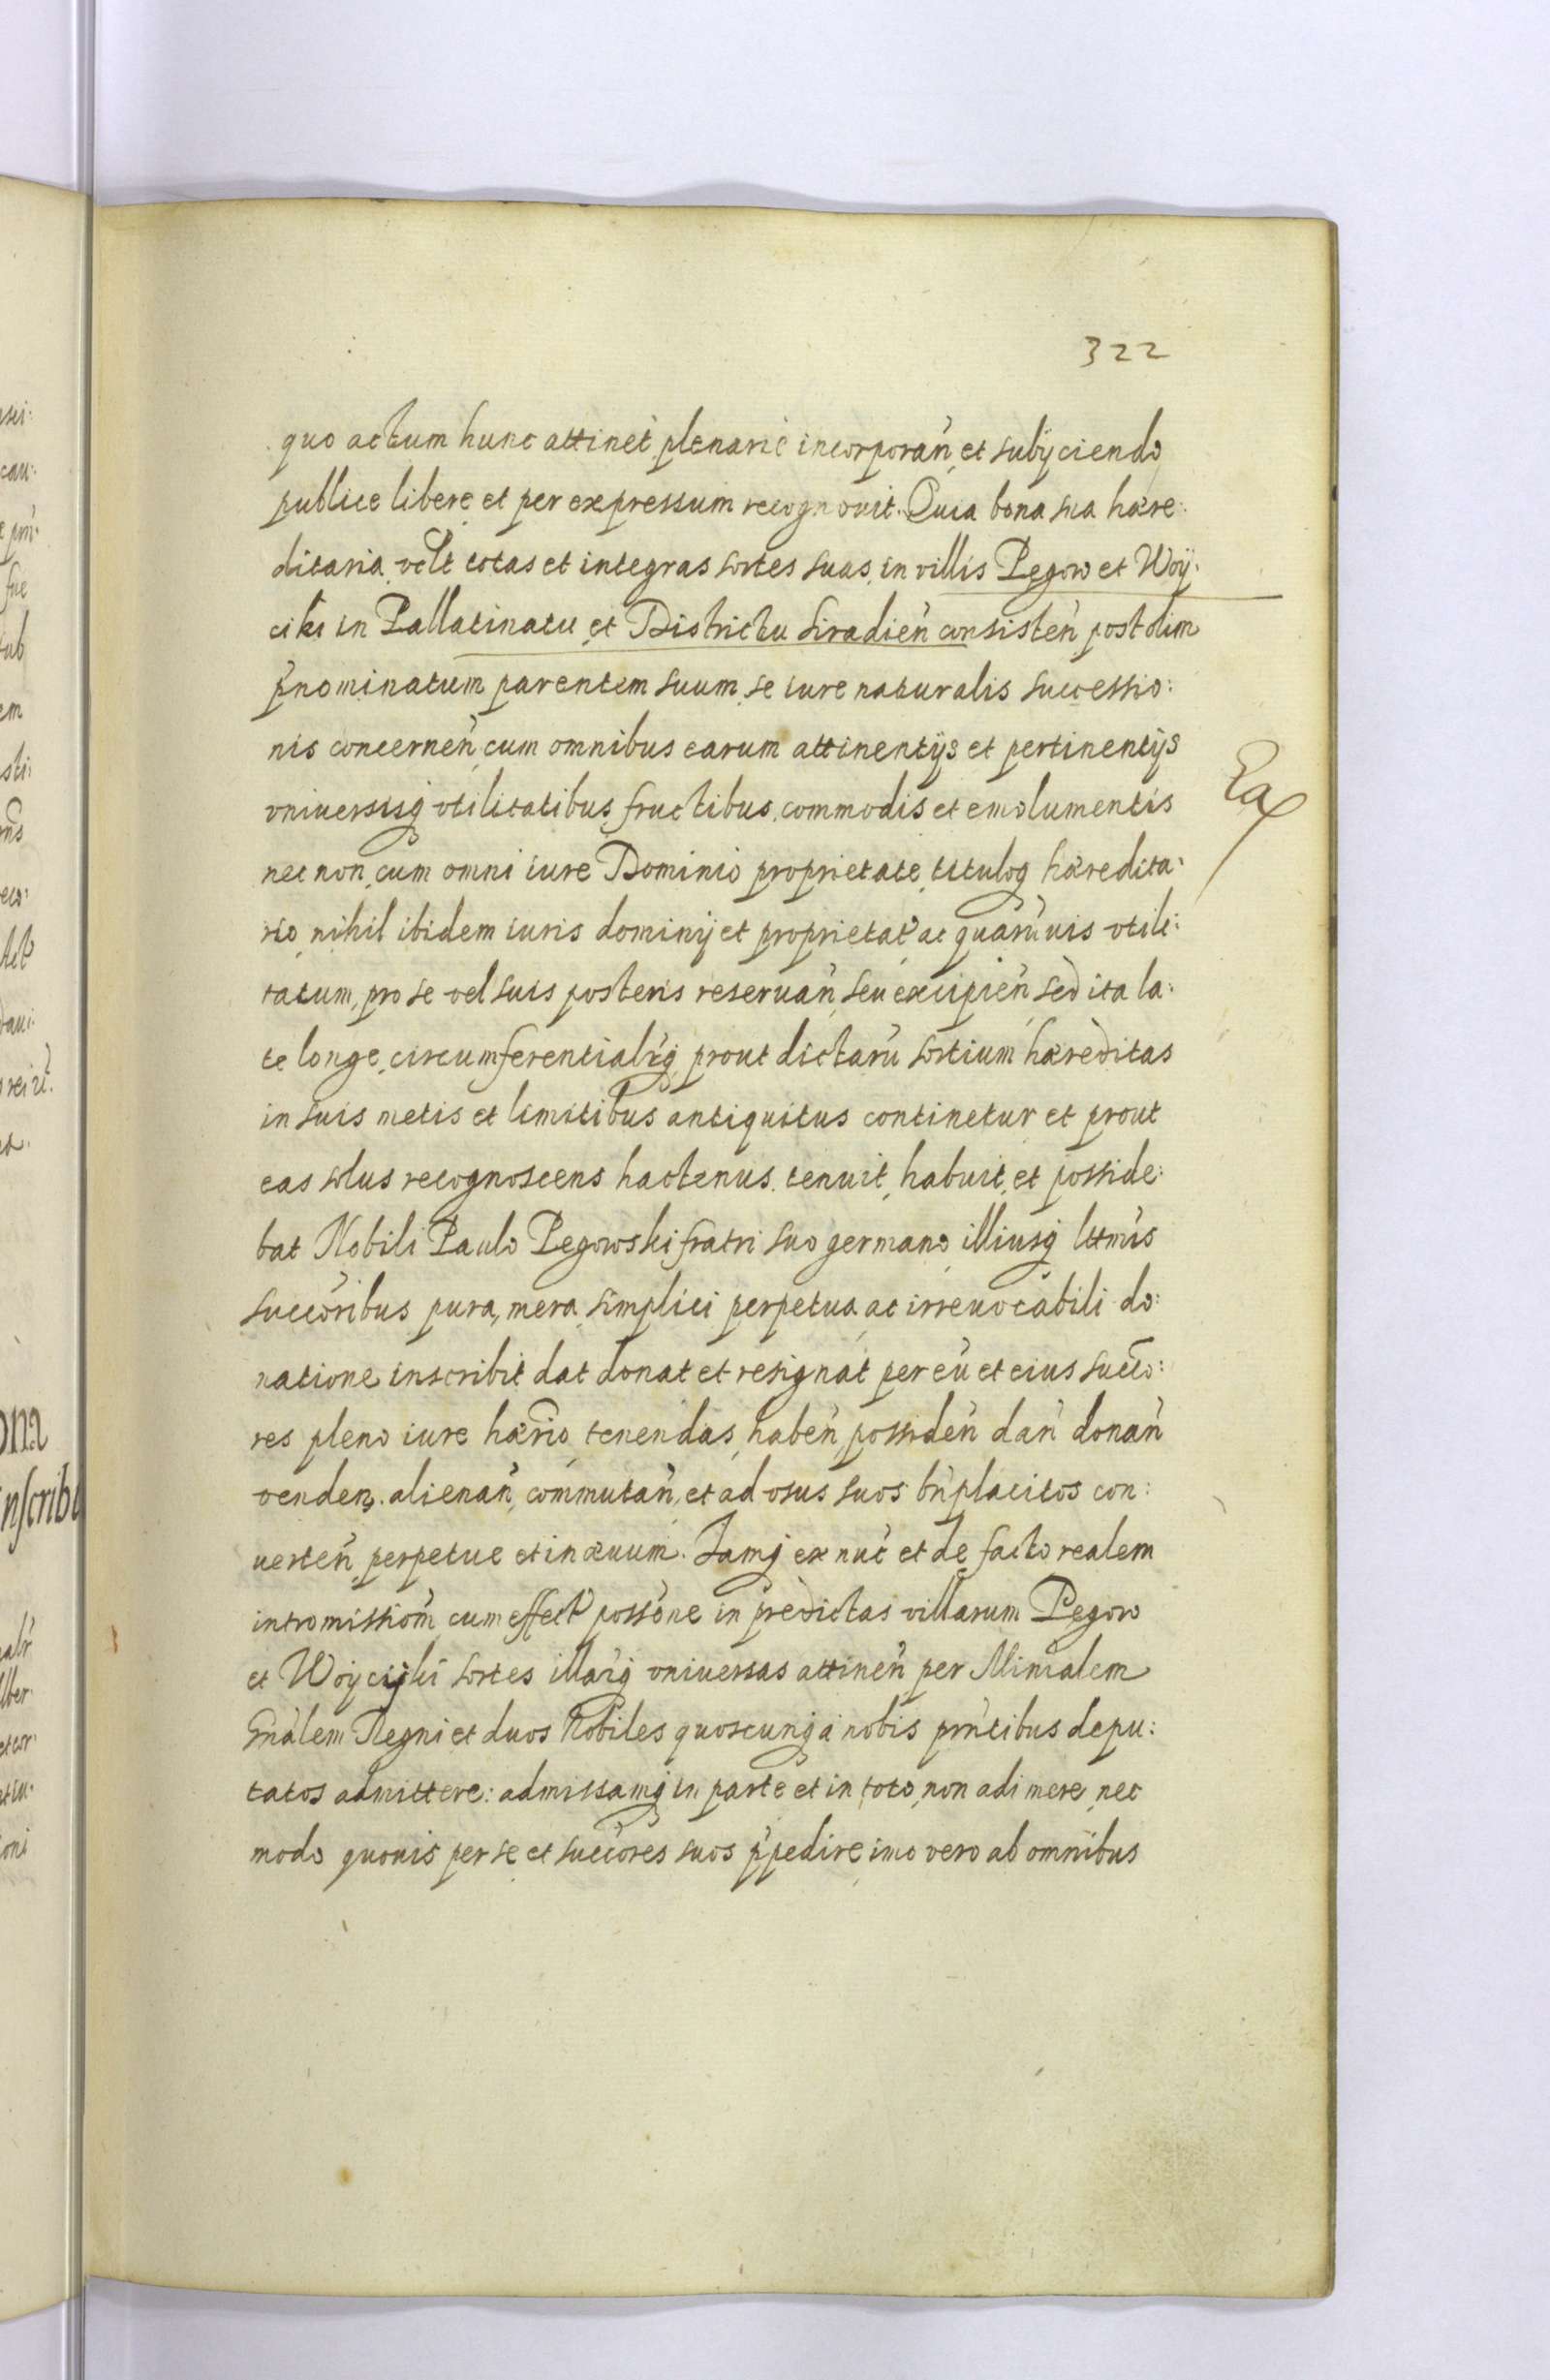 322
quo actum hunc attinet plenarie incorporan̄ et subijciendo
publice libere et per expressum recognouit. Quia bona sua hære:
ditaria velt totas et integras sortes suas, in villis Pęgow et Woÿ:
ciki in Pallatinatu et Districtu Siradien̄ consisten̄ post olim
p̄nominatum parentem suum, se iure naturalis successio:
nis concernen̄, cum omnibus earum attinentijs et pertinentijs
vniuersisq̨ vtilitatibus, fructibus, commodis et emolumentis
nec non, cum omni iure Dominio proprietate, tituloq̨ hæredita:
rio, nihil ibidem iuris dominij et proprietat ac quarūuis vtili:
tatum, pro se vel suis posteris reseruan̄, seu excipien̄ sed ita la:
te longe, circumferentialr̄q̨ prout dictarū sortium hæreditas
in suis metis et limitibus antiquitus continetur et prout
eas solus recognoscens hactenus. tenuit, habuit, et posside:
bat Nobili Paulo Pęgowski fratri suo germano illiusq̨ lttmis
succōribus pura, mera, simplici perpetua, ac irreuocabili do:
natione inscribit dat donat et resignat per eū et eius succo:
res pleno iure hærīo, tenendas, haben̄, possiden̄ dan̄ donan̄
venden. alienan̄, commutan̄, et ad vsus suos bn̄placitos con:
uerten̄, perpetue et in æuum. Jamq̨ ex nuc̄ et de facto realem
intromissiom̄ cum effect possōne in predictas villarum Pęgow
et Woÿcijki sortes illarq̨ vniuersas attinen̄ per Mīnialem
Gn̄alem Regni et duos Nobiles quoscunq̨ a nobis prn̄tibus depu:
tatos admittere: admissamq̨ in parte et in toto, non adimere, nec
modo quouis per se et succōres suos p̄pedire, imo vero ab omnibus
Ea